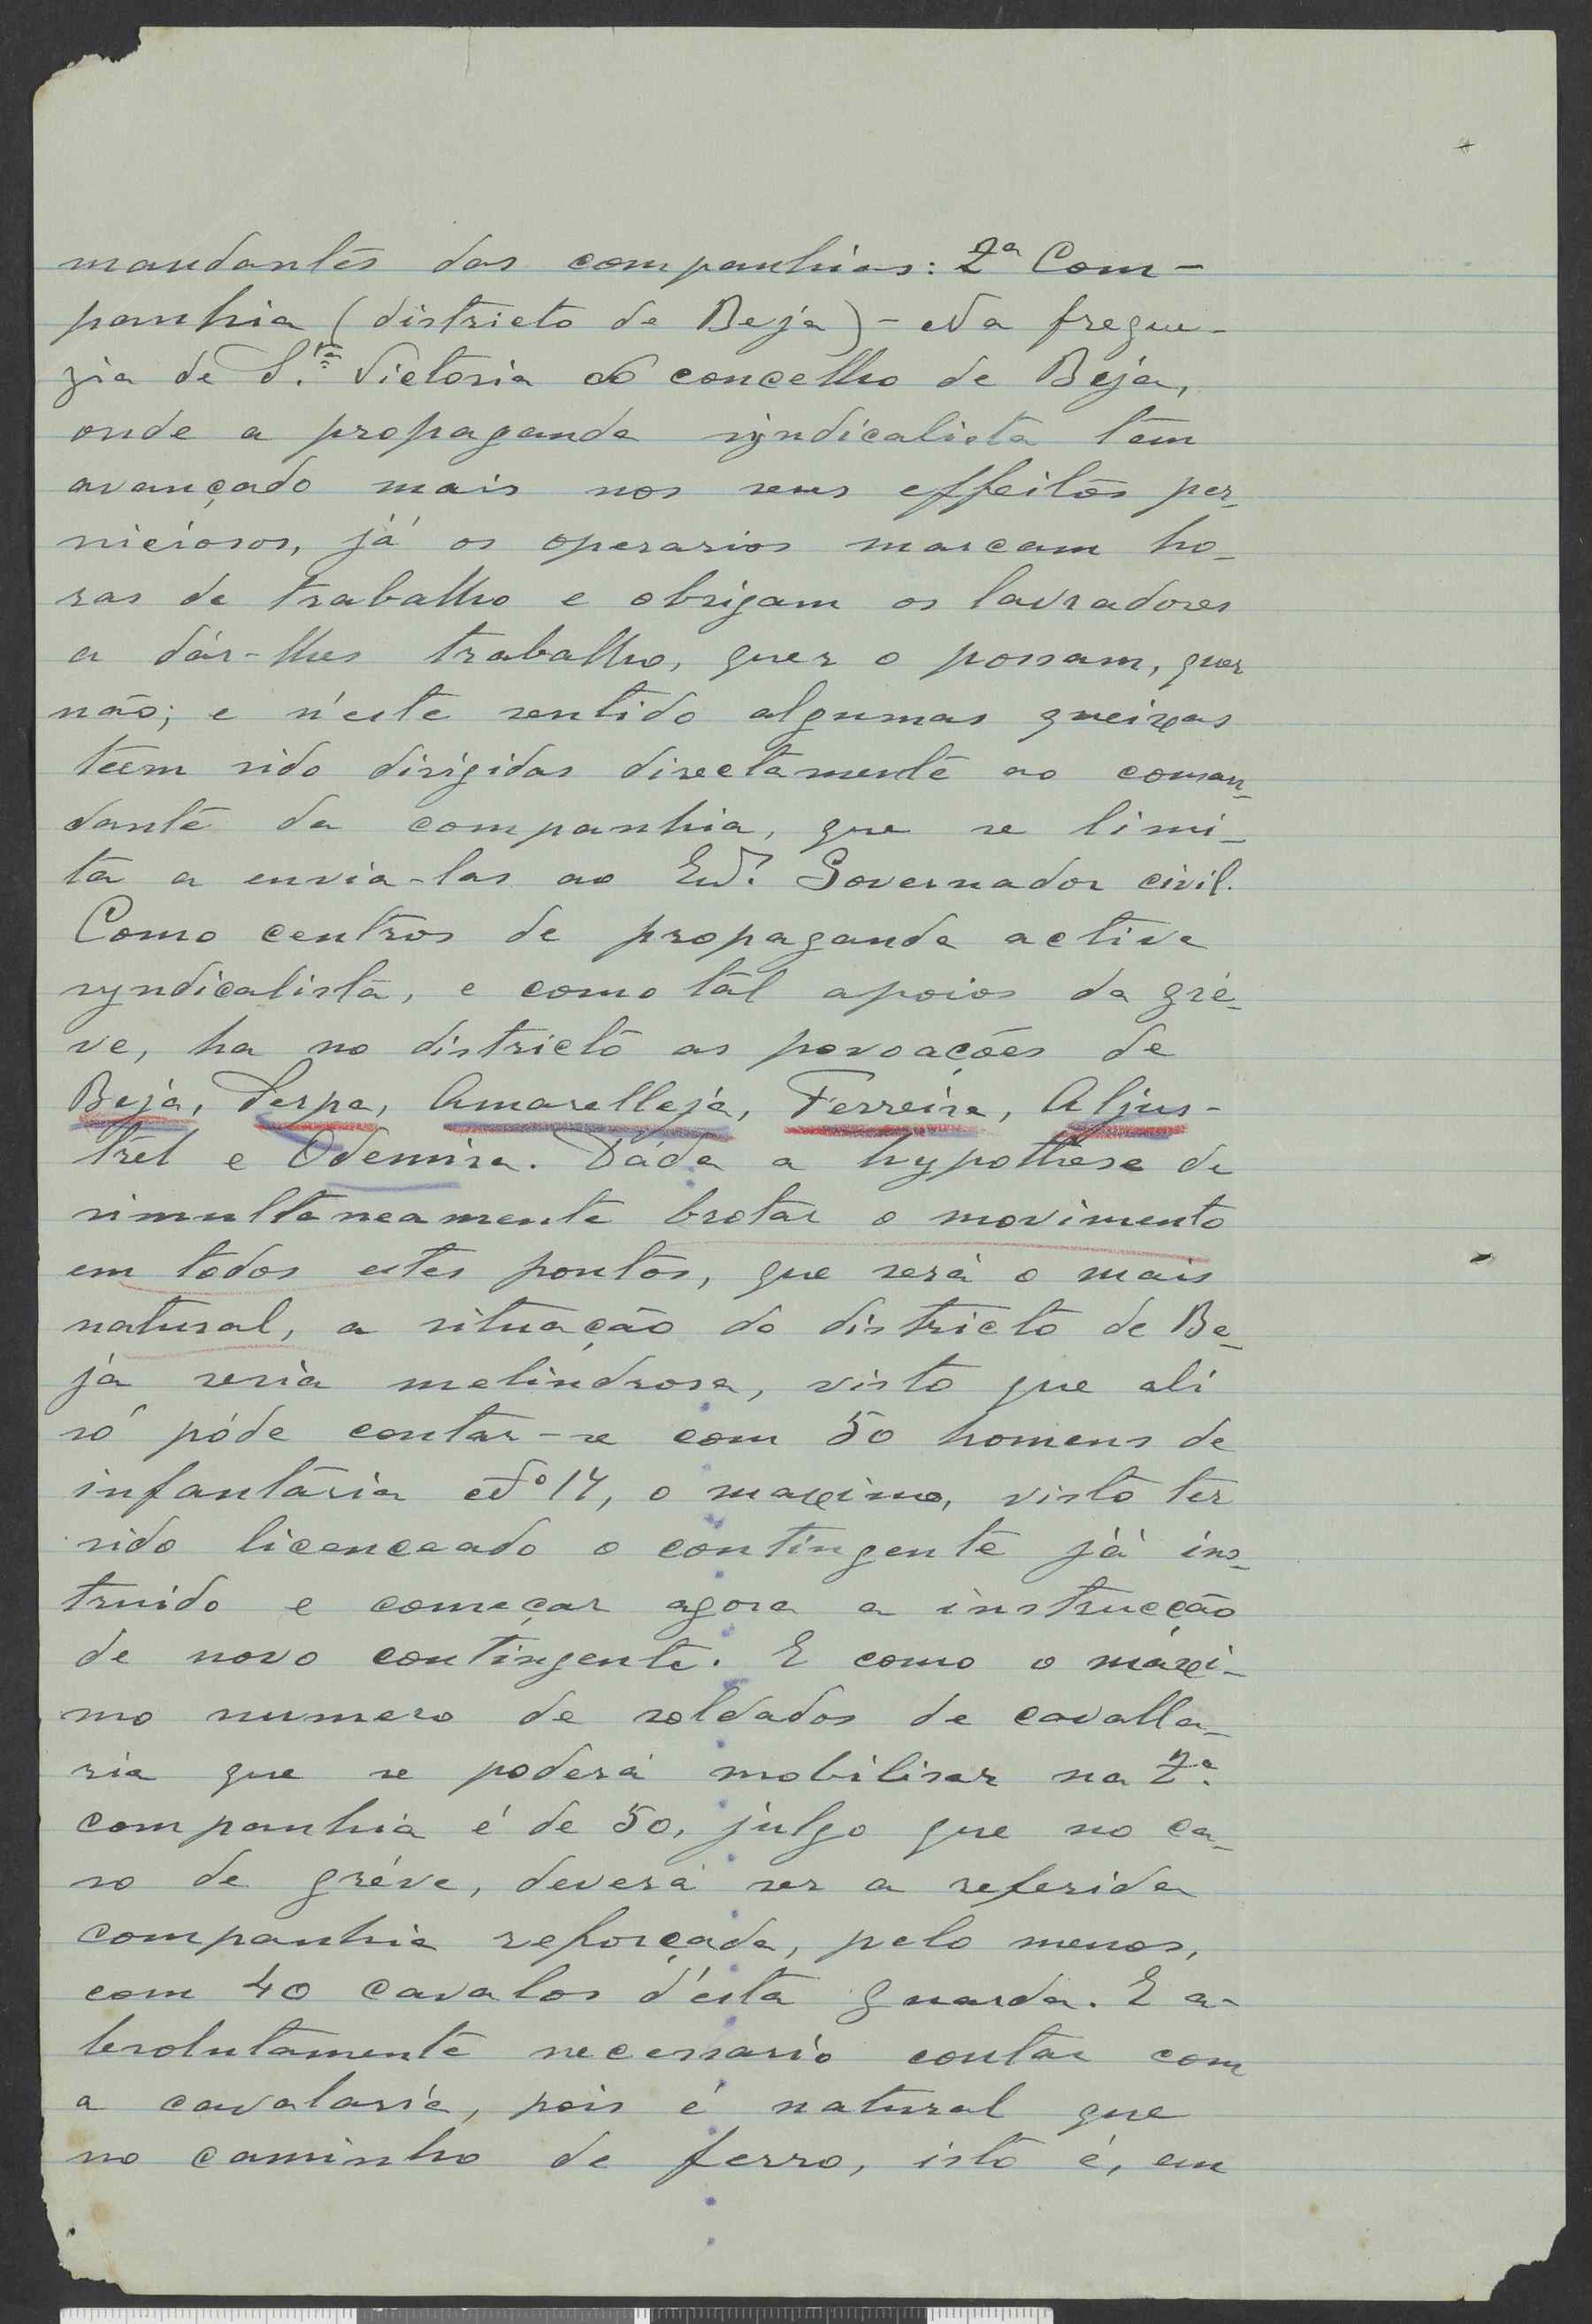 mandantes das companhias: 2ª Com-
panhia (districto de Beja) - Na fregue-
zia de S.ta Victoria do concelho de Beja,
onde a propaganda syndicalista tem
avançado mais nos seus effeitos per-
niciosos, já os operarios marcam ho-
ras de trabalho e obrigam os lavradores
a dár-lhes trabalho, quer o possam, quer
não; e n'este sentido algumas queixas
teem sido dirigidas directamente ao coman-
dante da companhia, que se limi-
ta a envia-las ao Governador civil.
Como centros de propaganda activa
syndicalista, e como tál apoios da gré-
ve, ha no districto as povoações de
Beja, Serpa, Amarelleja, Ferreira, Aljus-
trel e Odemira. Dáda a hypothese de
simultaneamente brotar o movimento
em todos estes pontos, que será o mais
natural, a situação do districto de Be-
ja seria melindrosa, visto que ali
só póde contar-se com 50 homens de
infantaria Nº 17, o maximo, visto ter
sido licenceado o contingente já ins-
truido e começar agora a instrucção
de novo contingente. E como o máxi-
mo numero de soldados de cavalla-
ria que se poderá mobilisar na 2ª.
companhia é de 50, julgo que no ca-
so de gréve, deverá ser a referida
companhia reforçada, pelo menos,
com 40 cavalos d'esta guarda. E a-
bsolutamente necessario contar com
a cavalaria, pois é natural que
no caminho de ferro, isto é, em